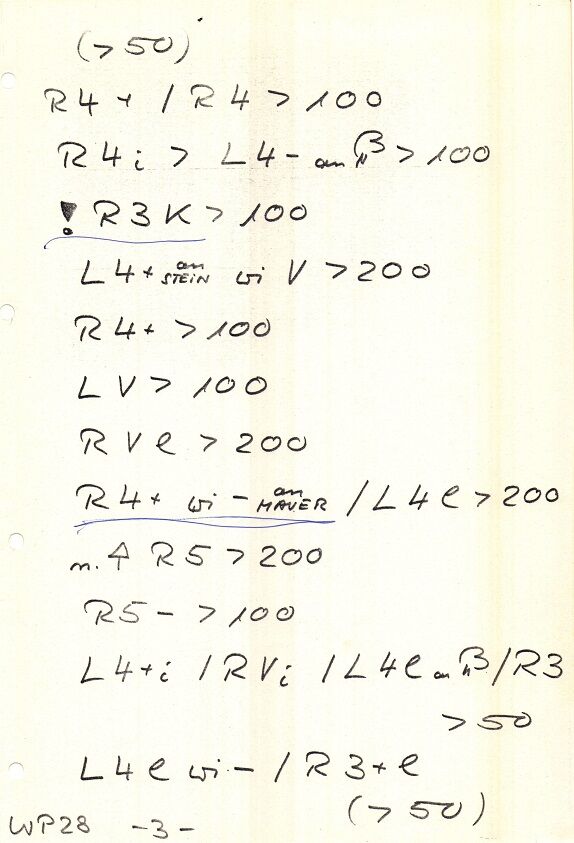 (>50)
R4+ / R4 > 100
R4i > L4- an > 100
! R3K > 100
L4+ an STEIN wi V > 200
R4+ > 100
LV > 100
RVl > 200
R4+ wi - an MAUER / L4l > 200
n. 4 R5 > 200
R5- > 100
L4+i / RVi / L4l an /R3
>50
L4l wi - / R3+l
(>50)
WP28 -3-